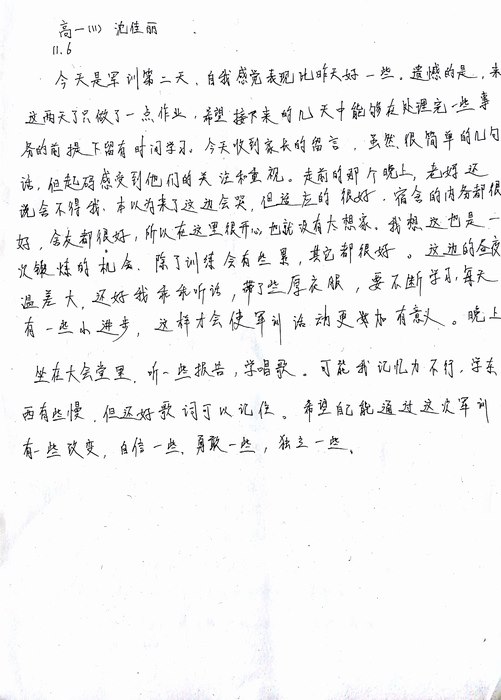 高一(1) 沈佳丽
11.6
今天是军训第二天,自我感觉表现比昨天好一些。遗憾的是,来
这两天了只做了一点作业,希望接下来的几天中能够在处理完一些事
务的前提下留有时间学习。今天收到家长的留言,虽然很简单的几句
话,但起码感受到他们的关注和重视。走前的那个晚上,老妈还
说会不得我,本以为来了这边会哭,但适应的很好,宿舍的内务都很
好,舍友都很好,所以在这里很开心也就没有太想家。我想这也是一
次锻炼的机会,除了训练会有些累,其它都很好。这边的昼夜
温差大,还好我乖乖听话,带了些厚衣服,要不断学习,每天
有一些小进步,这样才会使军训活动更加有意义。晚上
坐在大会堂里,听一些报告,学唱歌。可能我记忆力不行,学东
西有些慢,但还好歌词可以记住。希望自己能通过这次军训
有一些改变,自信一些,勇敢一些,独立一些。